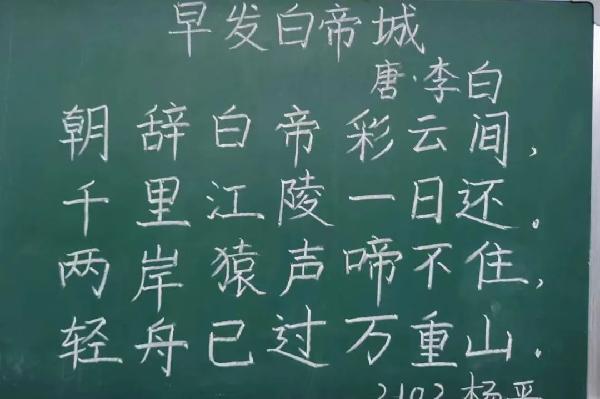 早发白帝城
唐·李白
朝辞白帝彩云间,
千里江陵一日还。
两岸猿声啼不住,
轻舟已过万重山.
2102 杨